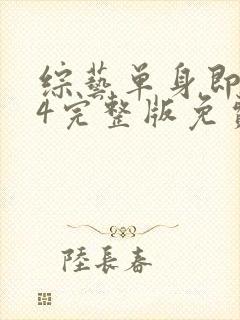 综藝单身即
4完整版免
陸長春